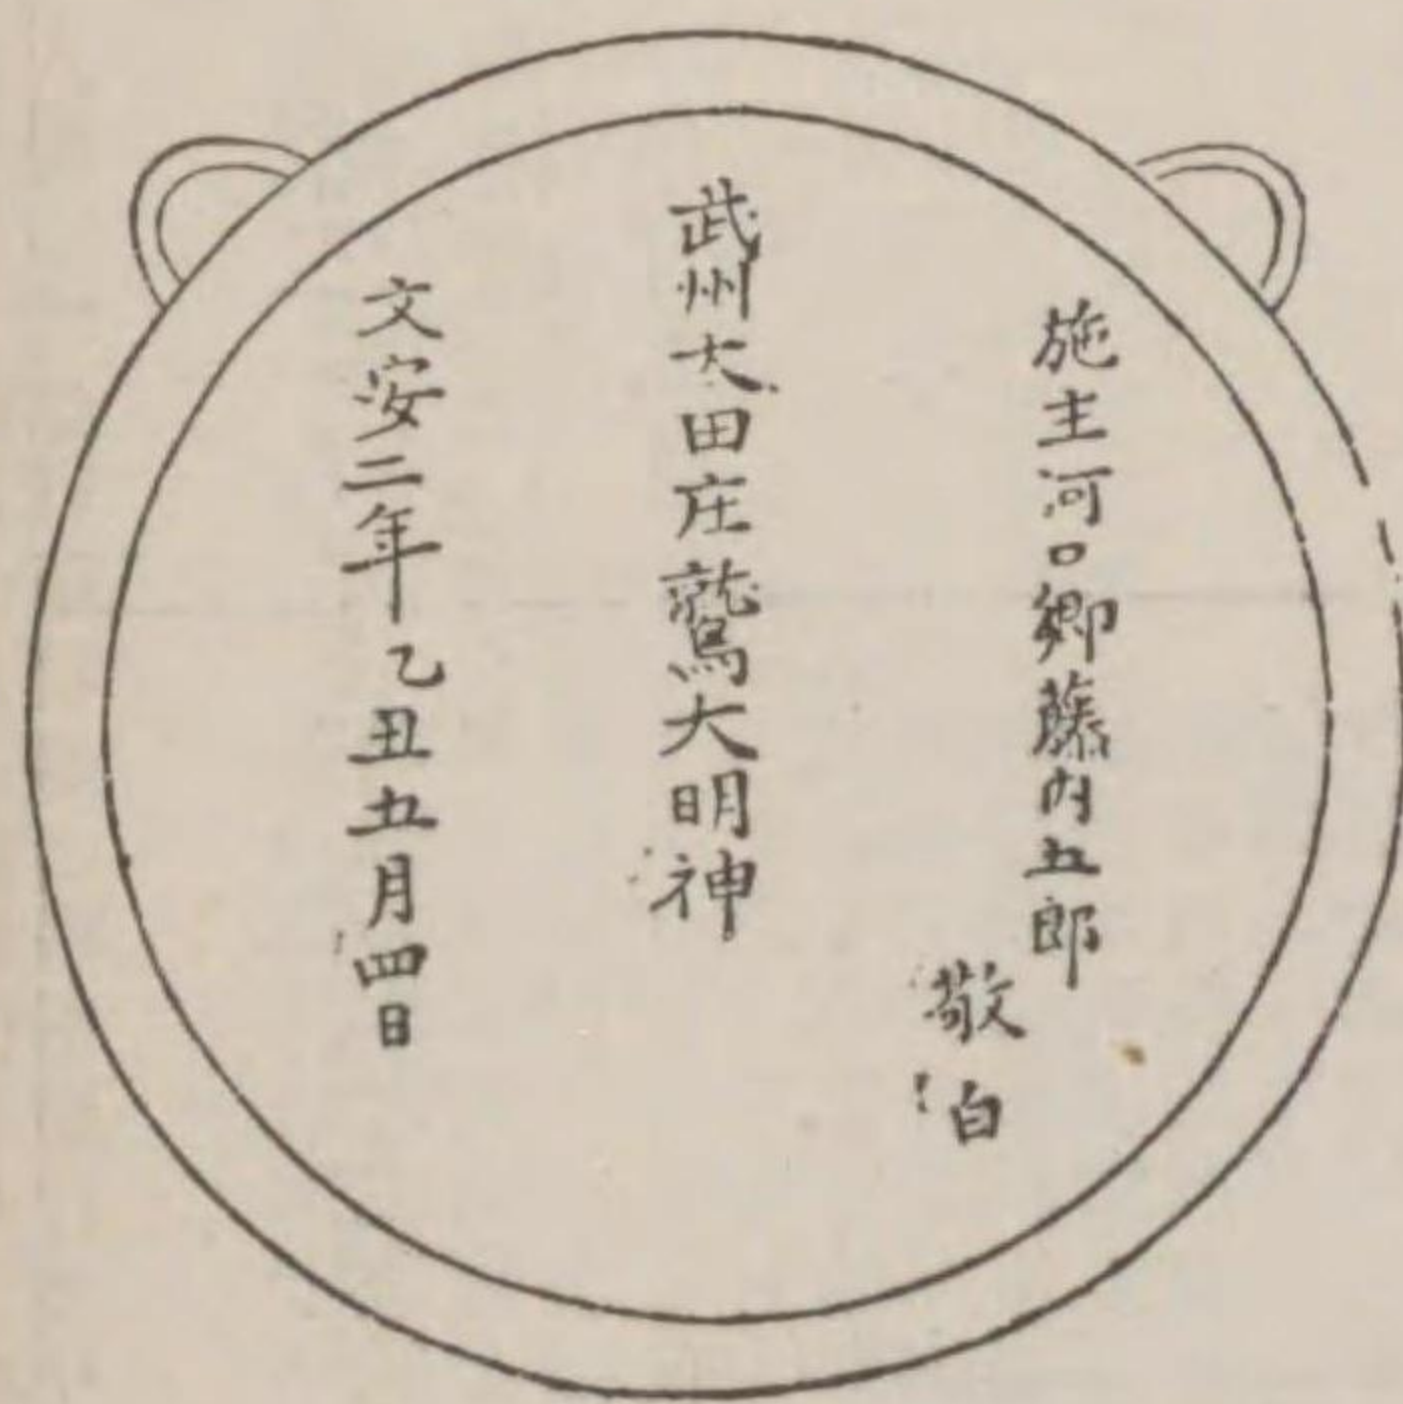 施主河口郷藤内五郎
敬白
武州太田庄鷲大明神
文安二年乙丑五月四日